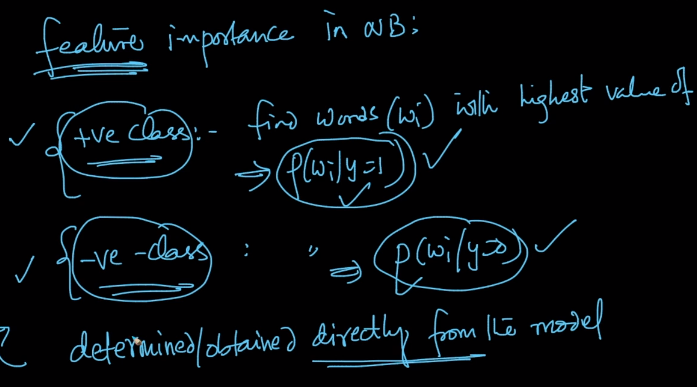 feature importance in NB:
+ve class:- find words (wi) with highest value of
⇒ P(wi/y=1)
-ve -class : " ⇒ p(wi/y=0)
determined/obtained directly from the model